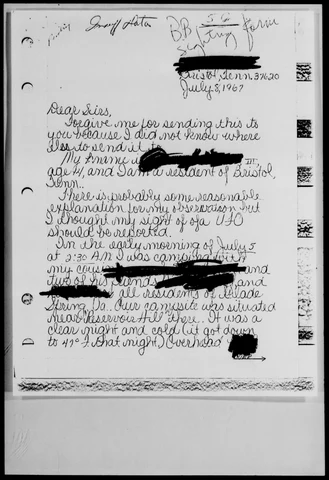 Insuff Data
BB
Sighting Form
Bristol, Tenn. 37620
July 8, 1967
Dear Sirs,
Forgive me for sending this to
you because I did not know where
else to send it to.
My name is III,
age 14, and I am a resident of Bristol,
Tenn.
There is probably some reasonable
explanation for my observation but
I thought my sight of a UFO
should be reported.
In the early morning of July 5
at 2:30 A.M. I was camping with
my cous and
two of his friends and
all residents of Glade
Spring Va. Our campsite was situated
near "Reservoir Hill" there. It was a
clear night and cold (it got down
to 47° that night) Overhead